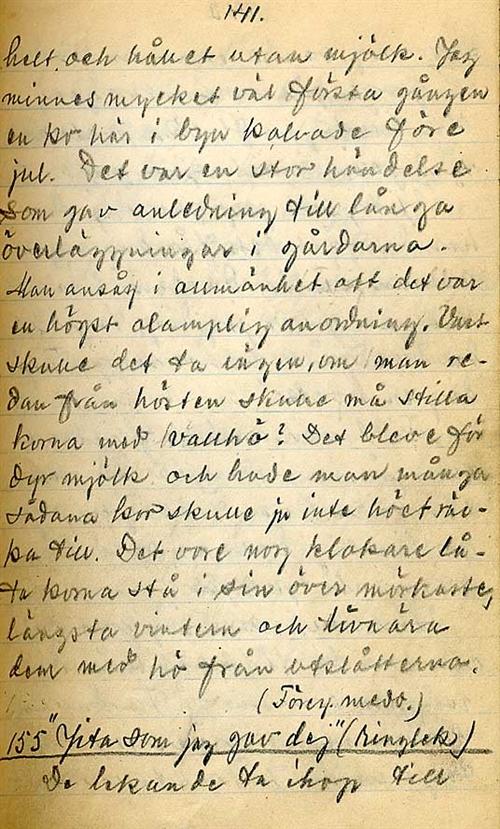 141.
helt och hållet utan mjölk. Jag
minnes mycket väl första gången
en ko här i byn kalvade före
jul. Det var en stor händelse
som gav anledning till långa
överläggningar i gårdarna.
Man ansåg i allmänhet att det var
en högst olämplig anordning. Vart
skulle det ta vägen, om man re-
dan från hösten skulle må stilla
korna med vallhö? Det bleve för
dyr mjölk och hade man många
sådana kor skulle ju inte höet räc-
ka till. Det vore nog klokare lå-
ta korna stå i sin över mörkaste,
längsta vintern och livnära
dem med hö från utslåtterna.
(Föreg. medd.)
155 "Gita som jag gav dej" (Ringlek)
De lekande ta ihop till